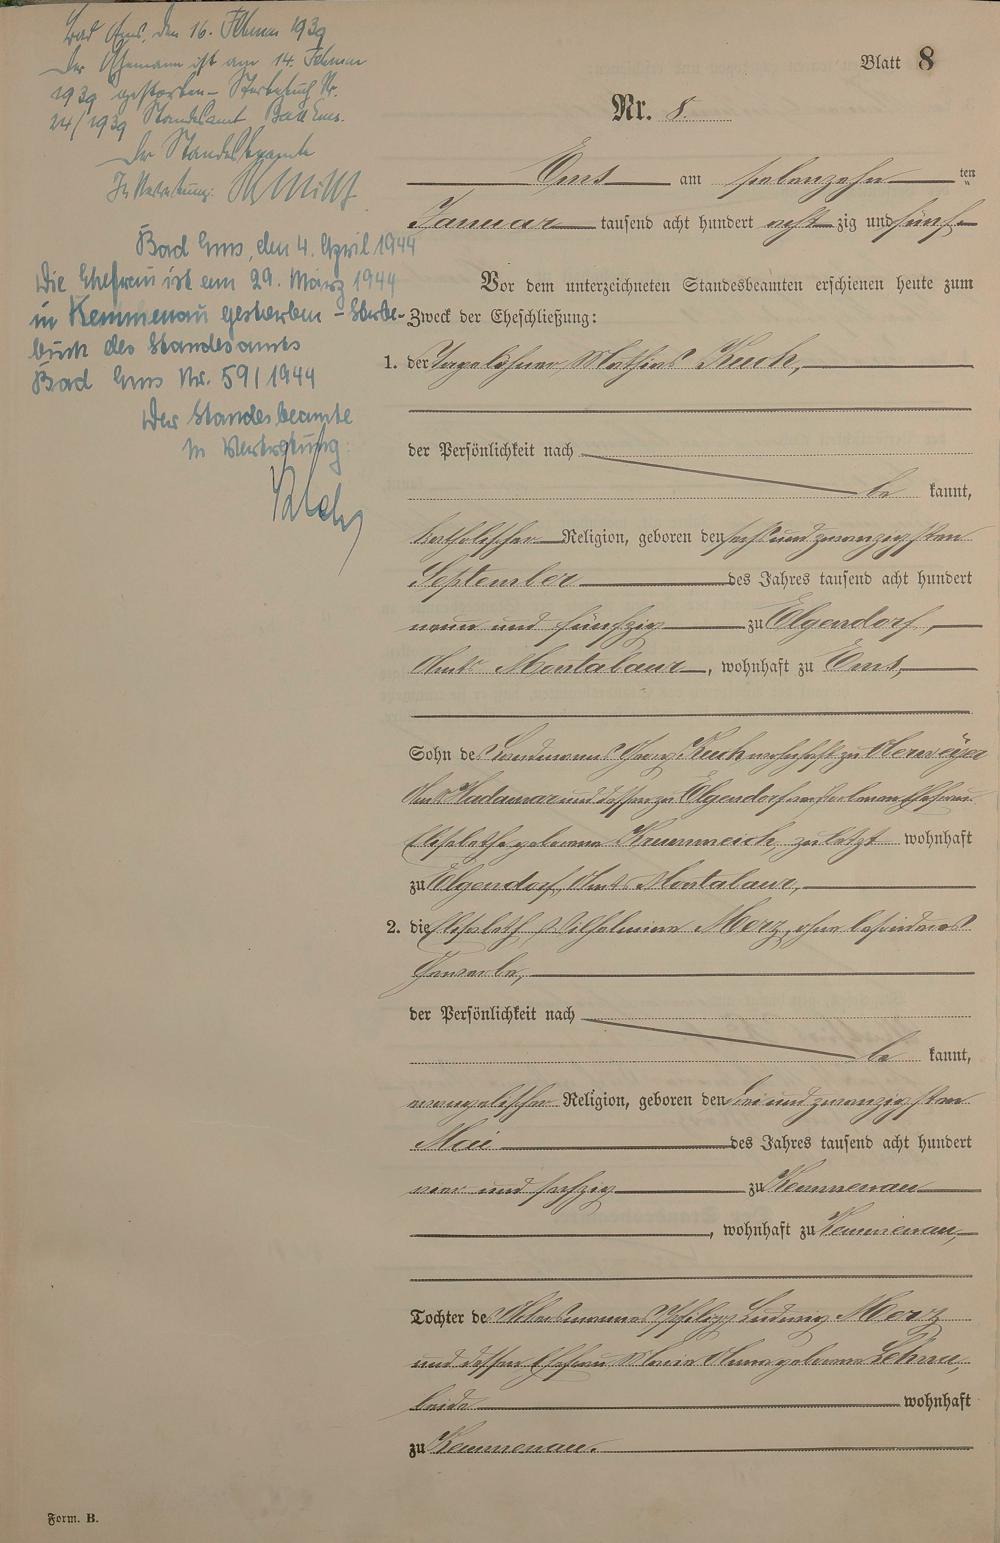 Bad Ems, den 16. Februar 1939
Der Ehemann ist am 14. Februar
1939 gestorben – Sterbebuch Nr.
24/1939 Standesamt Bad Ems.
Der Standesbeamte
In Vertretung:
Bad Ems, den 4. April 1944
Die Ehefrau ist am 29. März 1944
in Kemmenau gestorben – Sterbe-
buch des Standesamts
Bad Ems Nr. 59/1944
Der Standesbeamte
In Vertretung:
Blatt 8
Nr. 8.
Ems am siebenzehn ten
Januar tausend acht hundert acht zig und fünf
Vor dem unterzeichneten Standesbeamten erschienen heute zum
Zweck der Eheschließung:
1. der Tagelöhner Mathias Kuch,
der Persönlichkeit nach
be kannt,
katholischer Religion, geboren den sechs und zwanzigsten
September des Jahres tausend acht hundert
neun und fünfzig zu Elgendorf,
Amts Montabaur, wohnhaft zu Ems,
Sohn des Landmanns Georg Kuch wohnhaft zu Oberweyer
Amts Hadamar und dessen zu Elgendorf verstorbenen Ehefrau
Elisabetha geborene Krummeich, zuletzt wohnhaft
zu Elgendorf, Amts Montabaur,
2. die Elisabeth Wilhelmine Merz, ohne besonderes
Gewerbe,
der Persönlichkeit nach
be kannt,
evangelischer Religion, geboren den drei und zwanzigsten
Mai des Jahres tausend acht hundert
vier und sechzig zu Kemmenau
, wohnhaft zu Kemmenau,
Tochter des Ackersmannes Philipp Ludwig Merz
und dessen Ehefrau Maria Anna geborene
beide wohnhaft
zu Kemmenau.
Form. B.